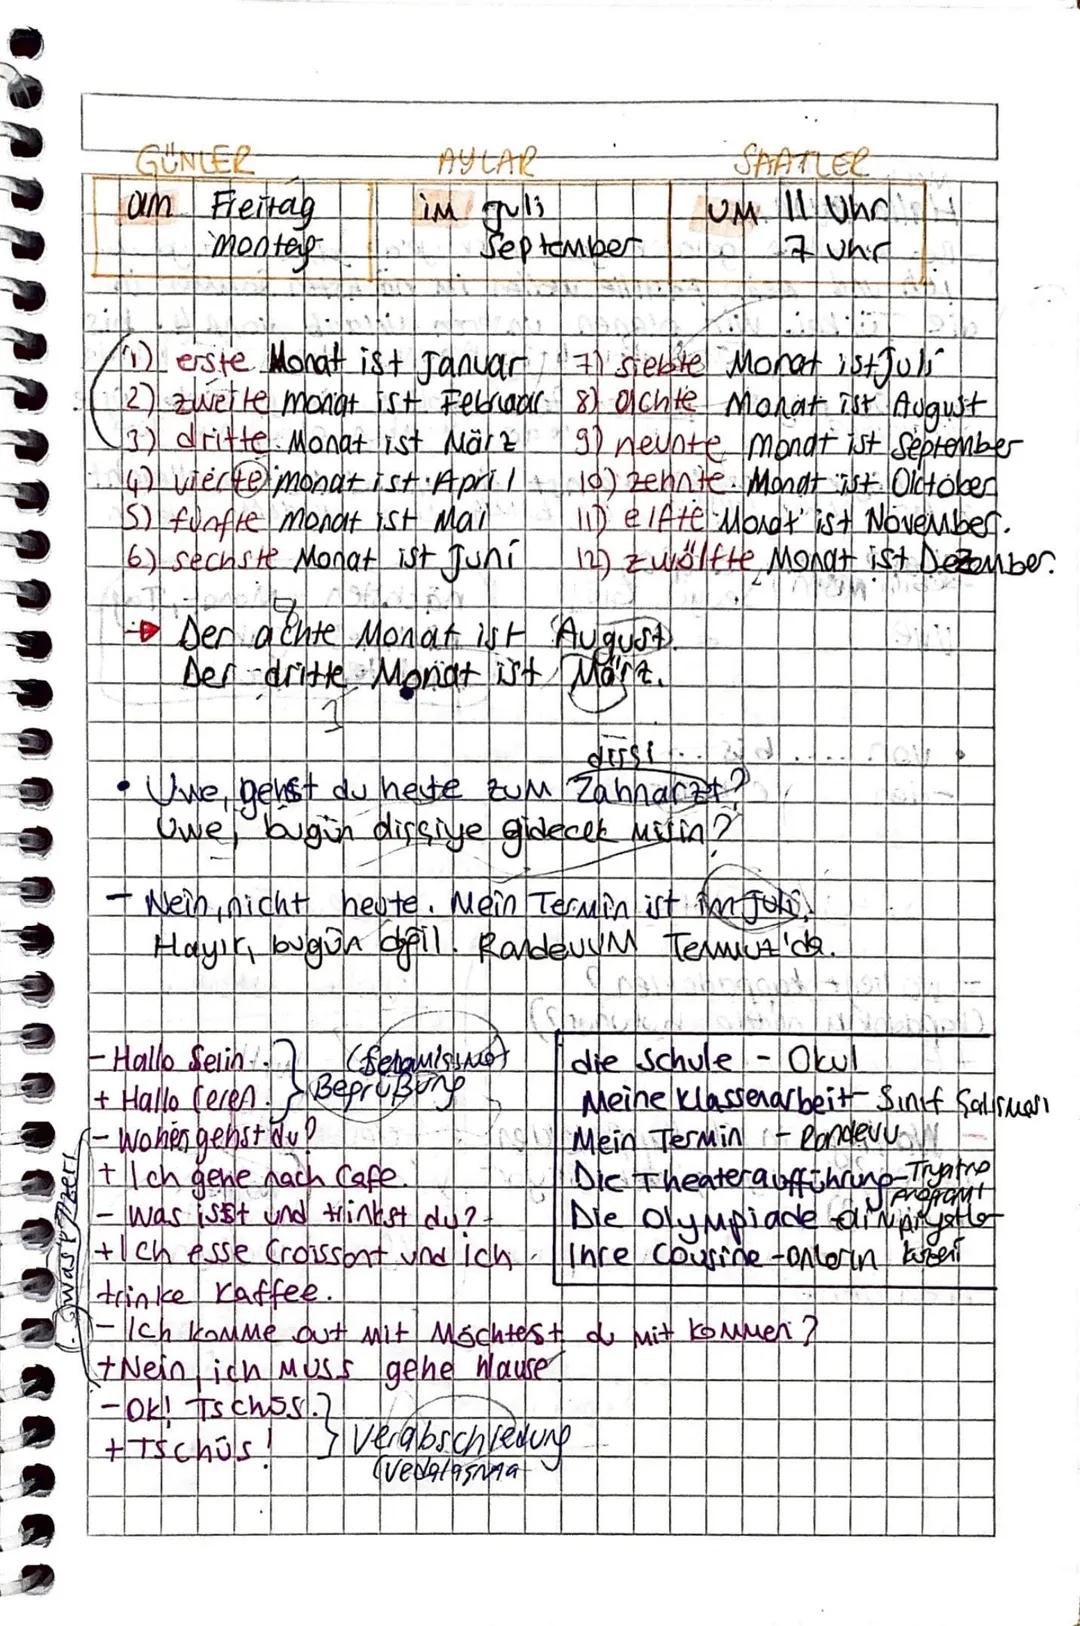 GÜNLER AYLAR SAATLER
am Freitag im Juli um 11 Uhr
montag September 7 Uhr
1) erste Monat ist Januar
2) zweite monat ist Februar
3) dritte Monat ist März
4) vierte monat ist April
5) fünfte monat ist Mai
6) sechste Monat ist Juni
7) siebte Monat ist Juli
8) achte Monat ist August
9) neunte monat ist September
10) zehnte Monat ist Oktober
11) elfte Monat ist November.
12) zwölfte Monat ist Dezember.
Der achte Monat ist August.
Der dritte Monat ist März.
3
dişçi
• Uwe, gehst du heute zum Zahnarzt?
Uwe, bugün dişçiye gidecek misin?
- Nein, nicht heute. Mein Termin ist im Juli.
Hayır, bugün değil. Randevum Temmuz'da.
- Hallo Selin.
+ Hallo Ceren.
(Selamlaşma)
Begrüßung
- Woher gehst du?
+ Ich gehe nach Cafe.
- Was isst und trinkst du?
+ Ich esse Croissont und ich
trinke Kaffee.
- Ich komme out mit Möchtest du mit kommen?
+ Nein, ich muss gehe Hause
- Ok! Tschüs.
+ Tschüs!
Verabschiedung
(vedalaşma
die Schule - Okul
Meine Klassenarbeit - Sınıf Çalışması
Mein Termin - Randevu
Die Theateraufführung - Tiyatro
programı
Die Olympiade - Olimpiyatlar
Ihre Cousine - Onların kuzeni